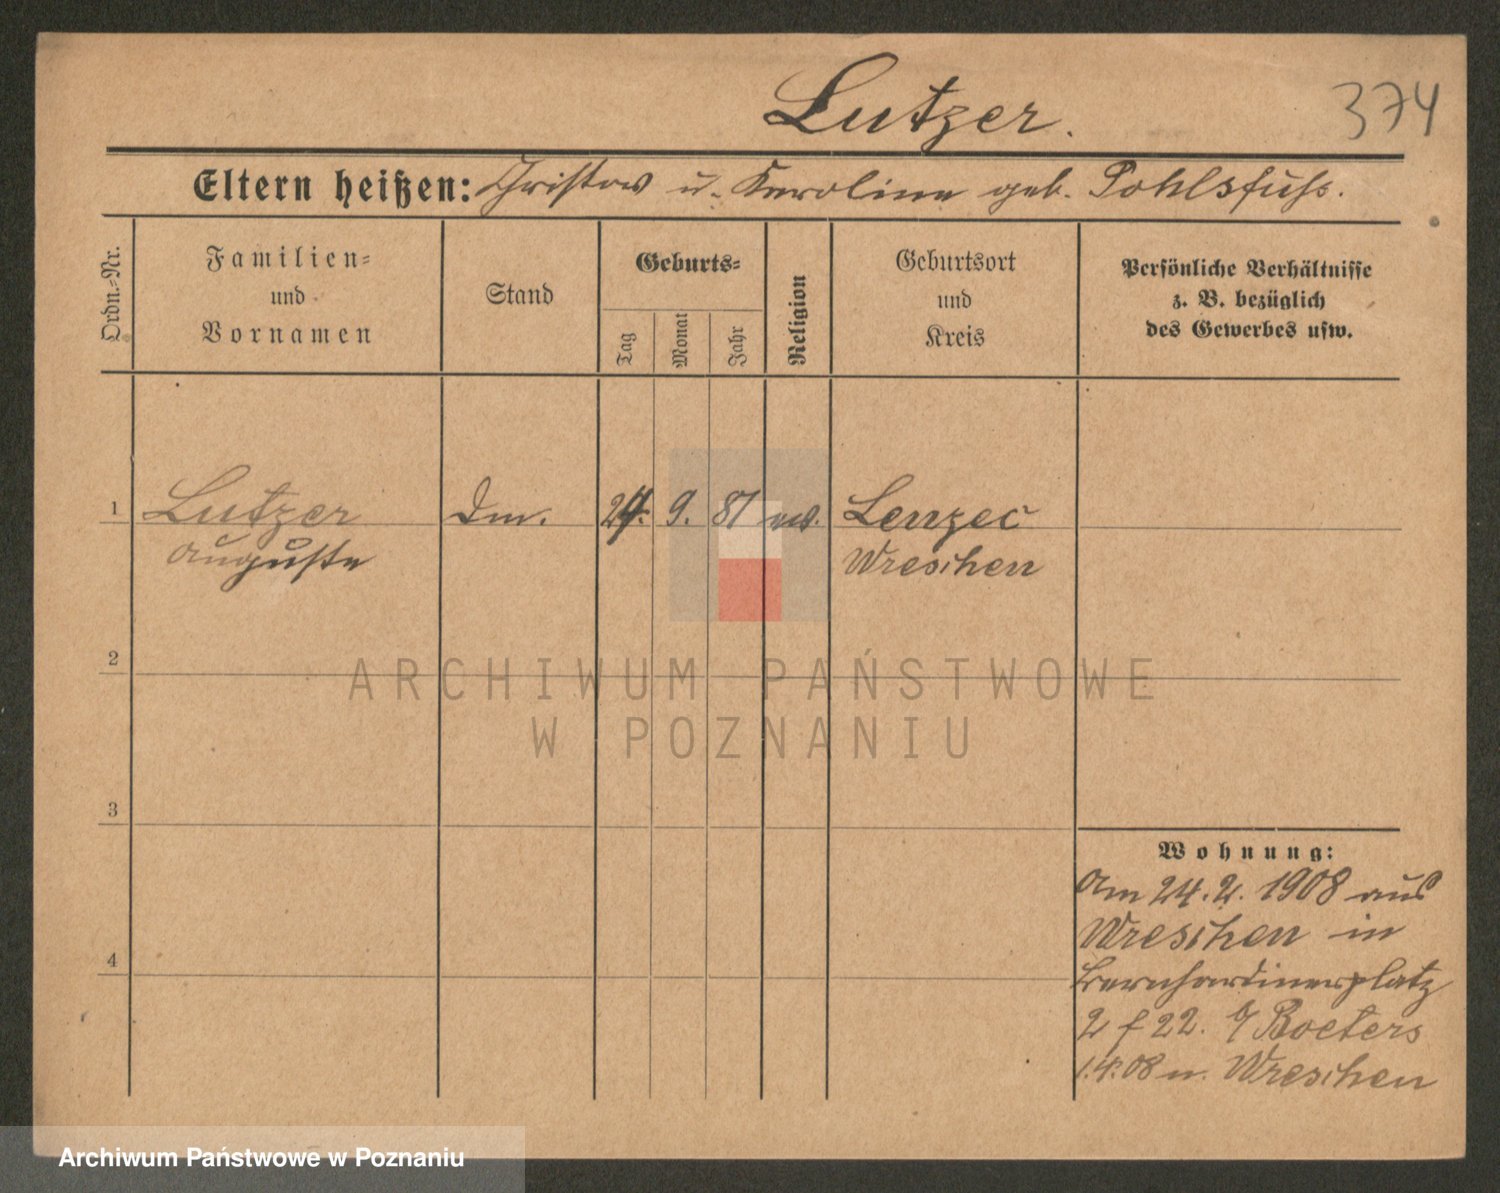 Lutzer.
374
Eltern heißen: Christow u. Karoline geb. Pohlsfuhs.
Ordn.-Nr.
Familien-
und
Vornamen
Stand
Geburts-
Tag
Monat
Jahr
Religion
Geburtsort
und
Kreis
Persönliche Verhältnisse
z. B. bezüglich
des Gewerbes usw.
1 Lutzer Dm. 24. 9. 87 ev. Lenzec
Auguste Wreschen
2
ARCHIWUM PAŃSTWOWE
W POZNANIU
3
Wohnung:
Am 24.2. 1908 aus
Wreschen in
Bernhardinerplatz
4
2 f 22. b/ Boeters
1.4.08 n. Wreschen
Archiwum Państwowe w Poznaniu